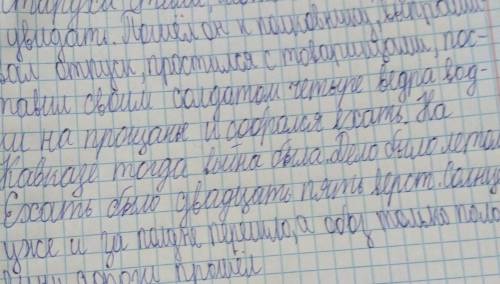 увидать. Пошёл он к полковнику, выправил
отпуск, простился с товарищами, пос-
тавил своим солдатам четыре ведра вод-
ки на прощанье и собрался ехать. На
Кавказе тогда война была. Дело было летом.
Ехать было двадцать пять верст. Солнце
уже и за полдни перешло, а обоз только поло-
дороги прошёл